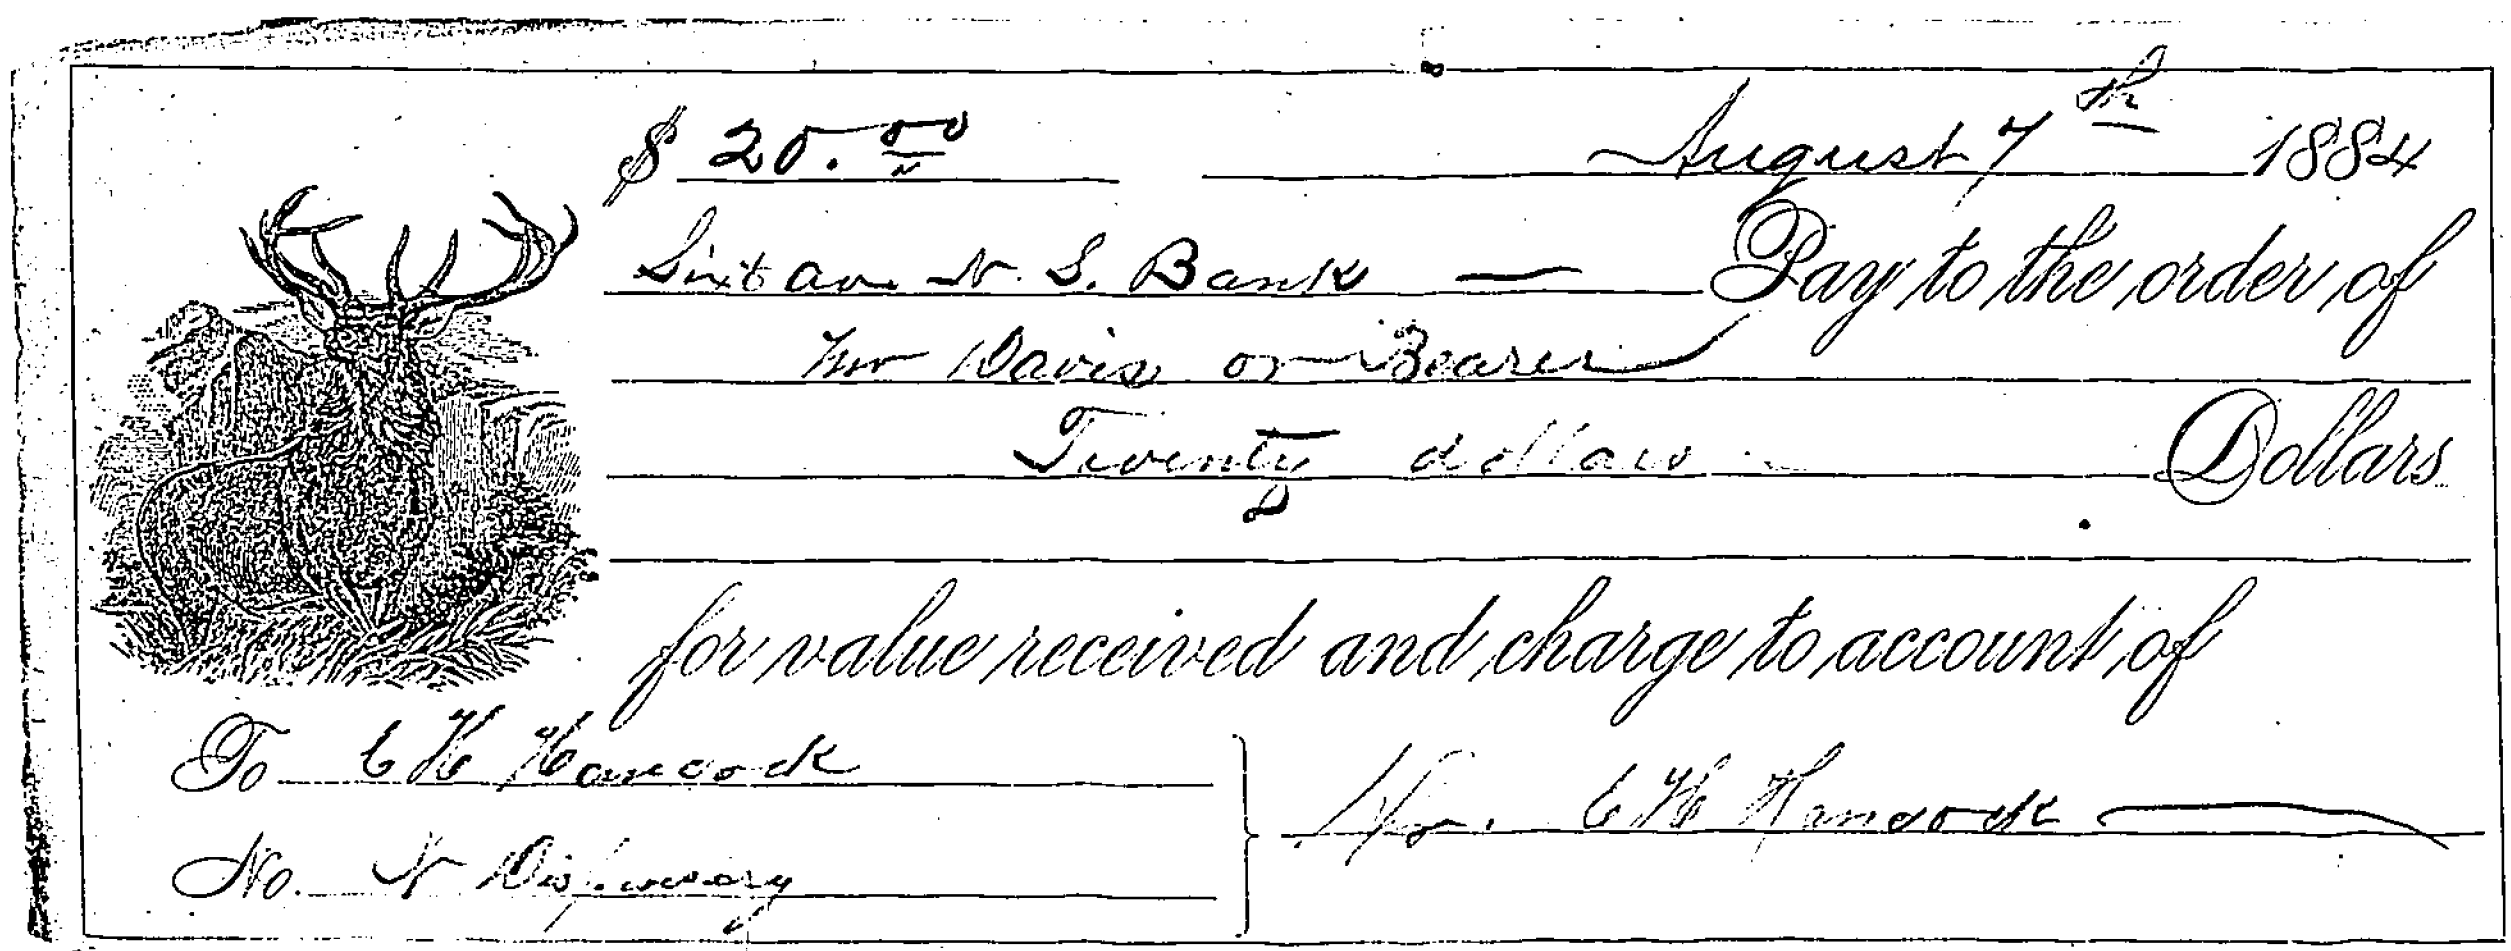 $ 20.00 August 7th 1884
Sixt av N. S. Bank — Pay to the order of
Mr Davis or Bearer
Twenty dollars Dollars
for value received and charge to account of
To E H Hancock
E H Hancock
No. N Dispensary